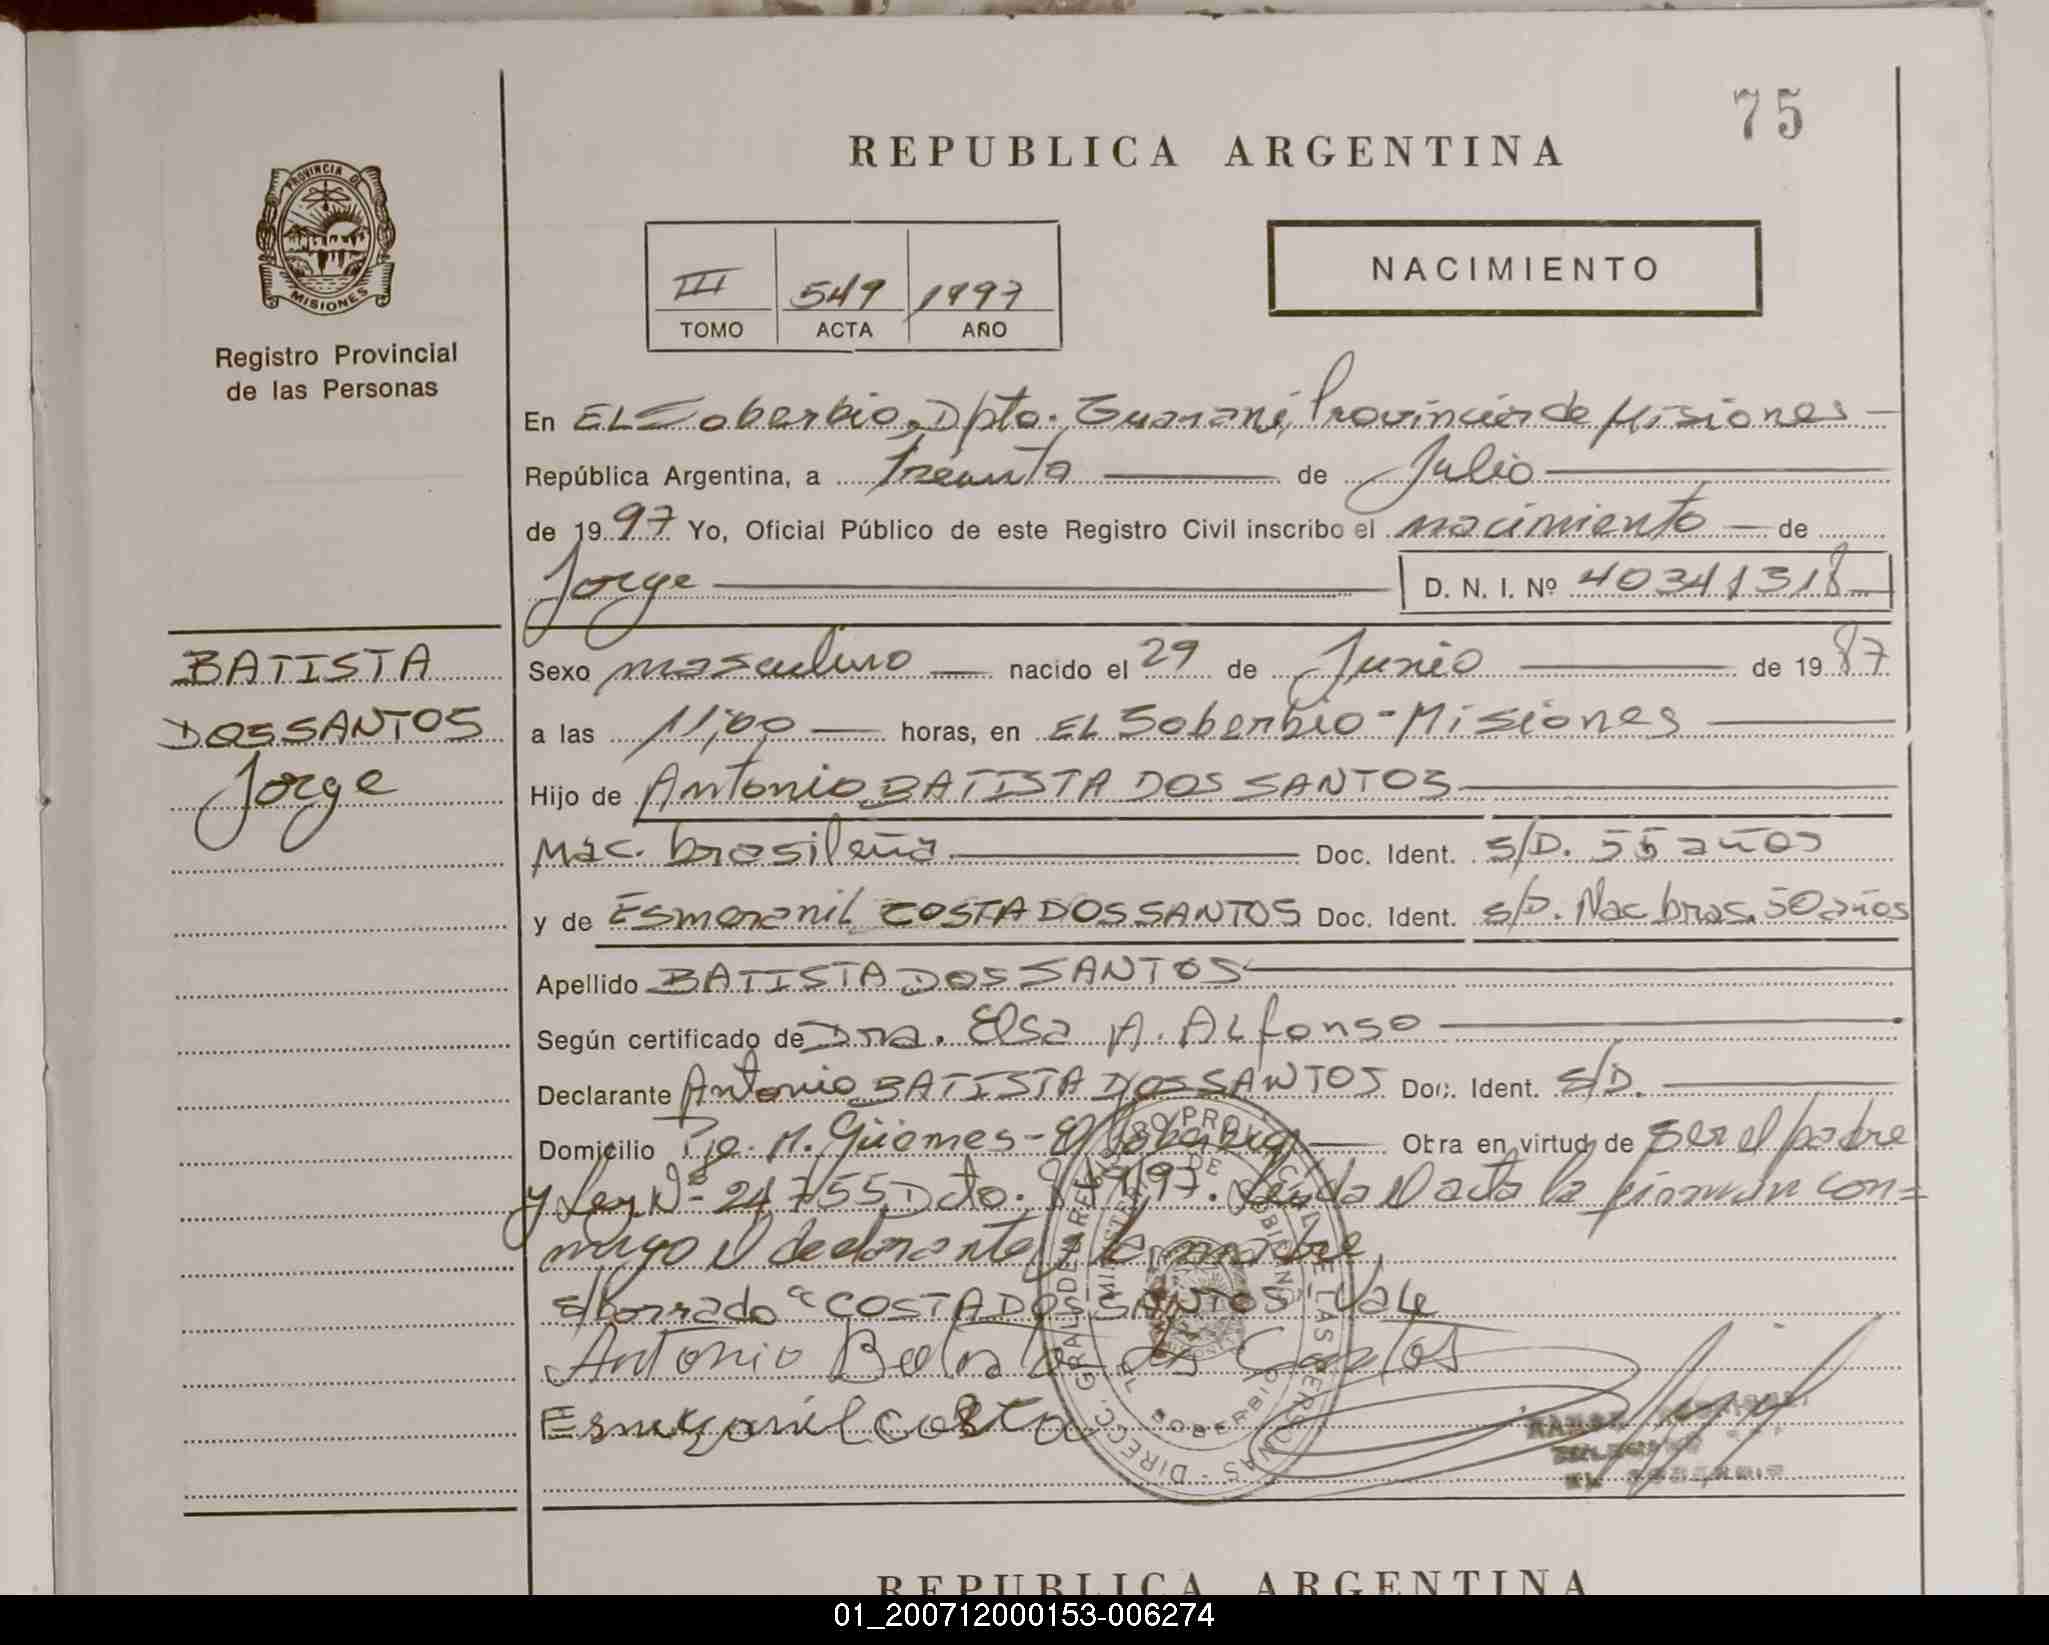 75
REPUBLICA ARGENTINA
PROVINCIA DE
MISIONES
Registro Provincial
de las Personas
III 549 1997
TOMO ACTA AÑO
NACIMIENTO
En EL Soberbio, Dpto. Guaraní, Provincia de Misiones
República Argentina, a treinta de Julio
de 1997 Yo, Oficial Público de este Registro Civil inscribo el nacimiento de
Jorge D. N. I. Nº 40341318
BATISTA
DOS SANTOS
Jorge
Sexo masculino nacido el 29 de Junio de 1987
a las 11,00 horas, en EL Soberbio - Misiones
Hijo de Antonio BATISTA DOS SANTOS
Nac. brasileña Doc. Ident. S/D. 55 años
y de Esmeranil COSTA DOS SANTOS Doc. Ident. S/D. Nac bras. 50 años
Apellido BATISTA DOS SANTOS
Según certificado de Dra. Elsa A. Alfonso
Declarante Antonio BATISTA DOS SANTOS Doc. Ident. S/D.
Domicilio Pje. M. Güemes - El Soberbio Obra en virtud de ser el padre
y Ley Nº 24755 Dcto. /97. Leída el acta la firman con=
migo el declarante y la madre
s/borrado "COSTA DOS SANTOS" Vale
Antonio Batista dos Santos
Esmeranil costa
EL SOBERBIO
REPUBLICA ARGENTINA
01_200712000153-006274